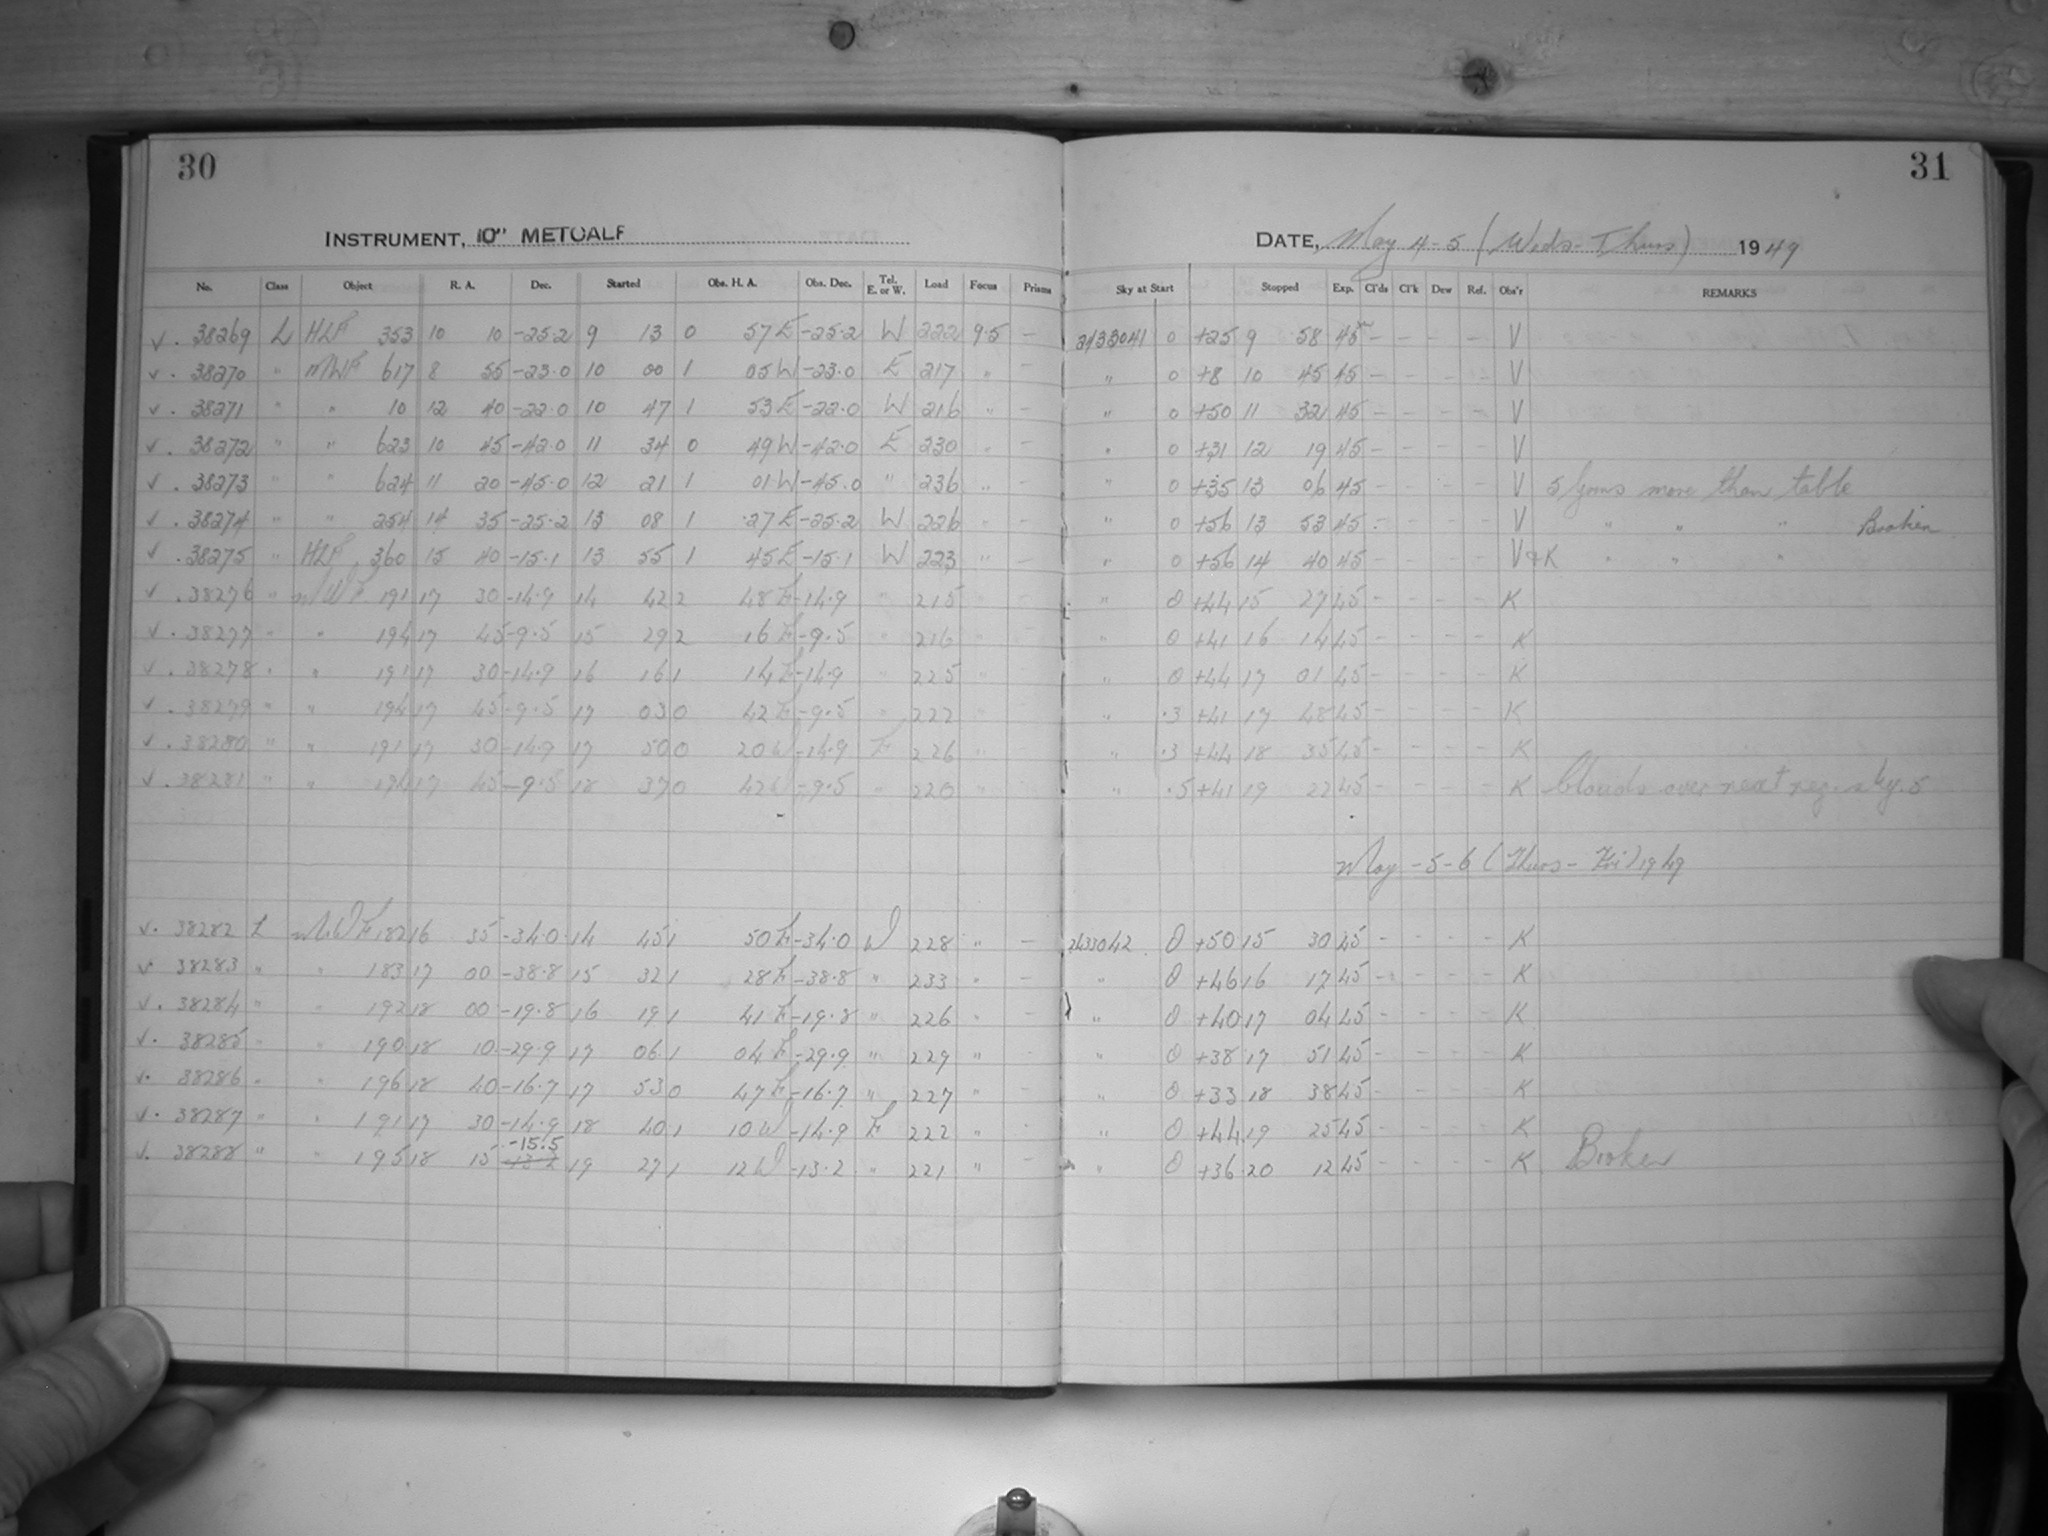 30
31
INSTRUMENT, 10" METCALF
DATE, May 4-5 (Weds-Thurs) 1949
No. Class Object R. A. Dec. Started Obs. H. A. Obs. Dec. Tel. E. or W. Load Focus Prisms Sky at Start Stopped Exp. Cl'ds Cl'k Dew Ref. Obs'r REMARKS
√ . 38269 L HLF 353 10 10 -25.2 9 13 0 57 E -25.2 W 222 9.5 - 2433041 0 +25 9 58 45 - - - - V
√ . 38270 " MWF 617 8 55 -23.0 10 00 1 05 W -23.0 E 217 " - " 0 +8 10 45 45 - - - - V
√ . 38271 " " 10 12 40 -22.0 10 47 1 53 E -22.0 W 216 " - " 0 +50 11 32 45 - - - - V
√ . 38272 " " 623 10 45 -42.0 11 34 0 49 W -42.0 E 230 " - " 0 +31 12 19 45 - - - - V
√ . 38273 " " 624 11 20 -45.0 12 21 1 01 W -45.0 " 236 " - " 0 +35 13 06 45 - - - - V 5 more than table
√ . 38274 " " 254 14 35 -25.2 13 08 1 27 E -25.2 W 226 " - " 0 +56 13 53 45 - - - - V " " " Broken
√ . 38275 " HLF 360 15 40 -15.1 13 55 1 45 E -15.1 W 223 " - " 0 +56 14 40 45 - - - - V+K " " "
√ . 38276 " MWF 191 17 30 -14.9 14 42 2 48 E -14.9 " 215 " - " 0 +44 15 27 45 - - - - K
√ . 38277 " " 194 17 45 -9.5 15 29 2 16 E -9.5 " 216 " - " 0 +41 16 14 45 - - - - K
√ . 38278 " " 191 17 30 -14.9 16 16 1 14 E -14.9 " 225 " - " 0 +44 17 01 45 - - - - K
√ . 38279 " " 194 17 45 -9.5 17 03 0 42 E -9.5 " 222 " - " .3 +41 17 48 45 - - - - K
√ . 38280 " " 191 17 30 -14.9 17 50 0 20 W -14.9 E 226 " - " .3 +44 18 35 45 - - - - K
√ . 38281 " " 194 17 45 -9.5 18 37 0 42 W -9.5 " 220 " - " .5 +41 19 22 45 - - - - K Clouds over next reg. sky .5
May -5-6 (Thurs - Fri) 1949
√ . 38282 L MWF 182 16 35 -34.0 14 45 1 50 E -34.0 W 228 " - 2433042 0 +50 15 30 45 - - - - K
√ . 38283 " " 183 17 00 -38.8 15 32 1 28 E -38.8 " 233 " - " 0 +46 16 17 45 - - - - K
√ . 38284 " " 192 18 00 -19.8 16 19 1 41 E -19.8 " 226 " - " 0 +40 17 04 45 - - - - K
√ . 38285 " " 190 18 10 -29.9 17 06 1 04 E -29.9 " 229 " - " 0 +38 17 51 45 - - - - K
√ . 38286 " " 196 18 40 -16.7 17 53 0 47 E -16.7 " 227 " - " 0 +33 18 38 45 - - - - K
√ . 38287 " " 191 17 30 -14.9 18 40 1 10 W -14.9 E 222 " - " 0 +44 19 25 45 - - - - K
-15.5
√ . 38288 " " 195 18 15 -13.2 19 27 1 12 W -13.2 " 221 " - " 0 +36 20 12 45 - - - - K Broken